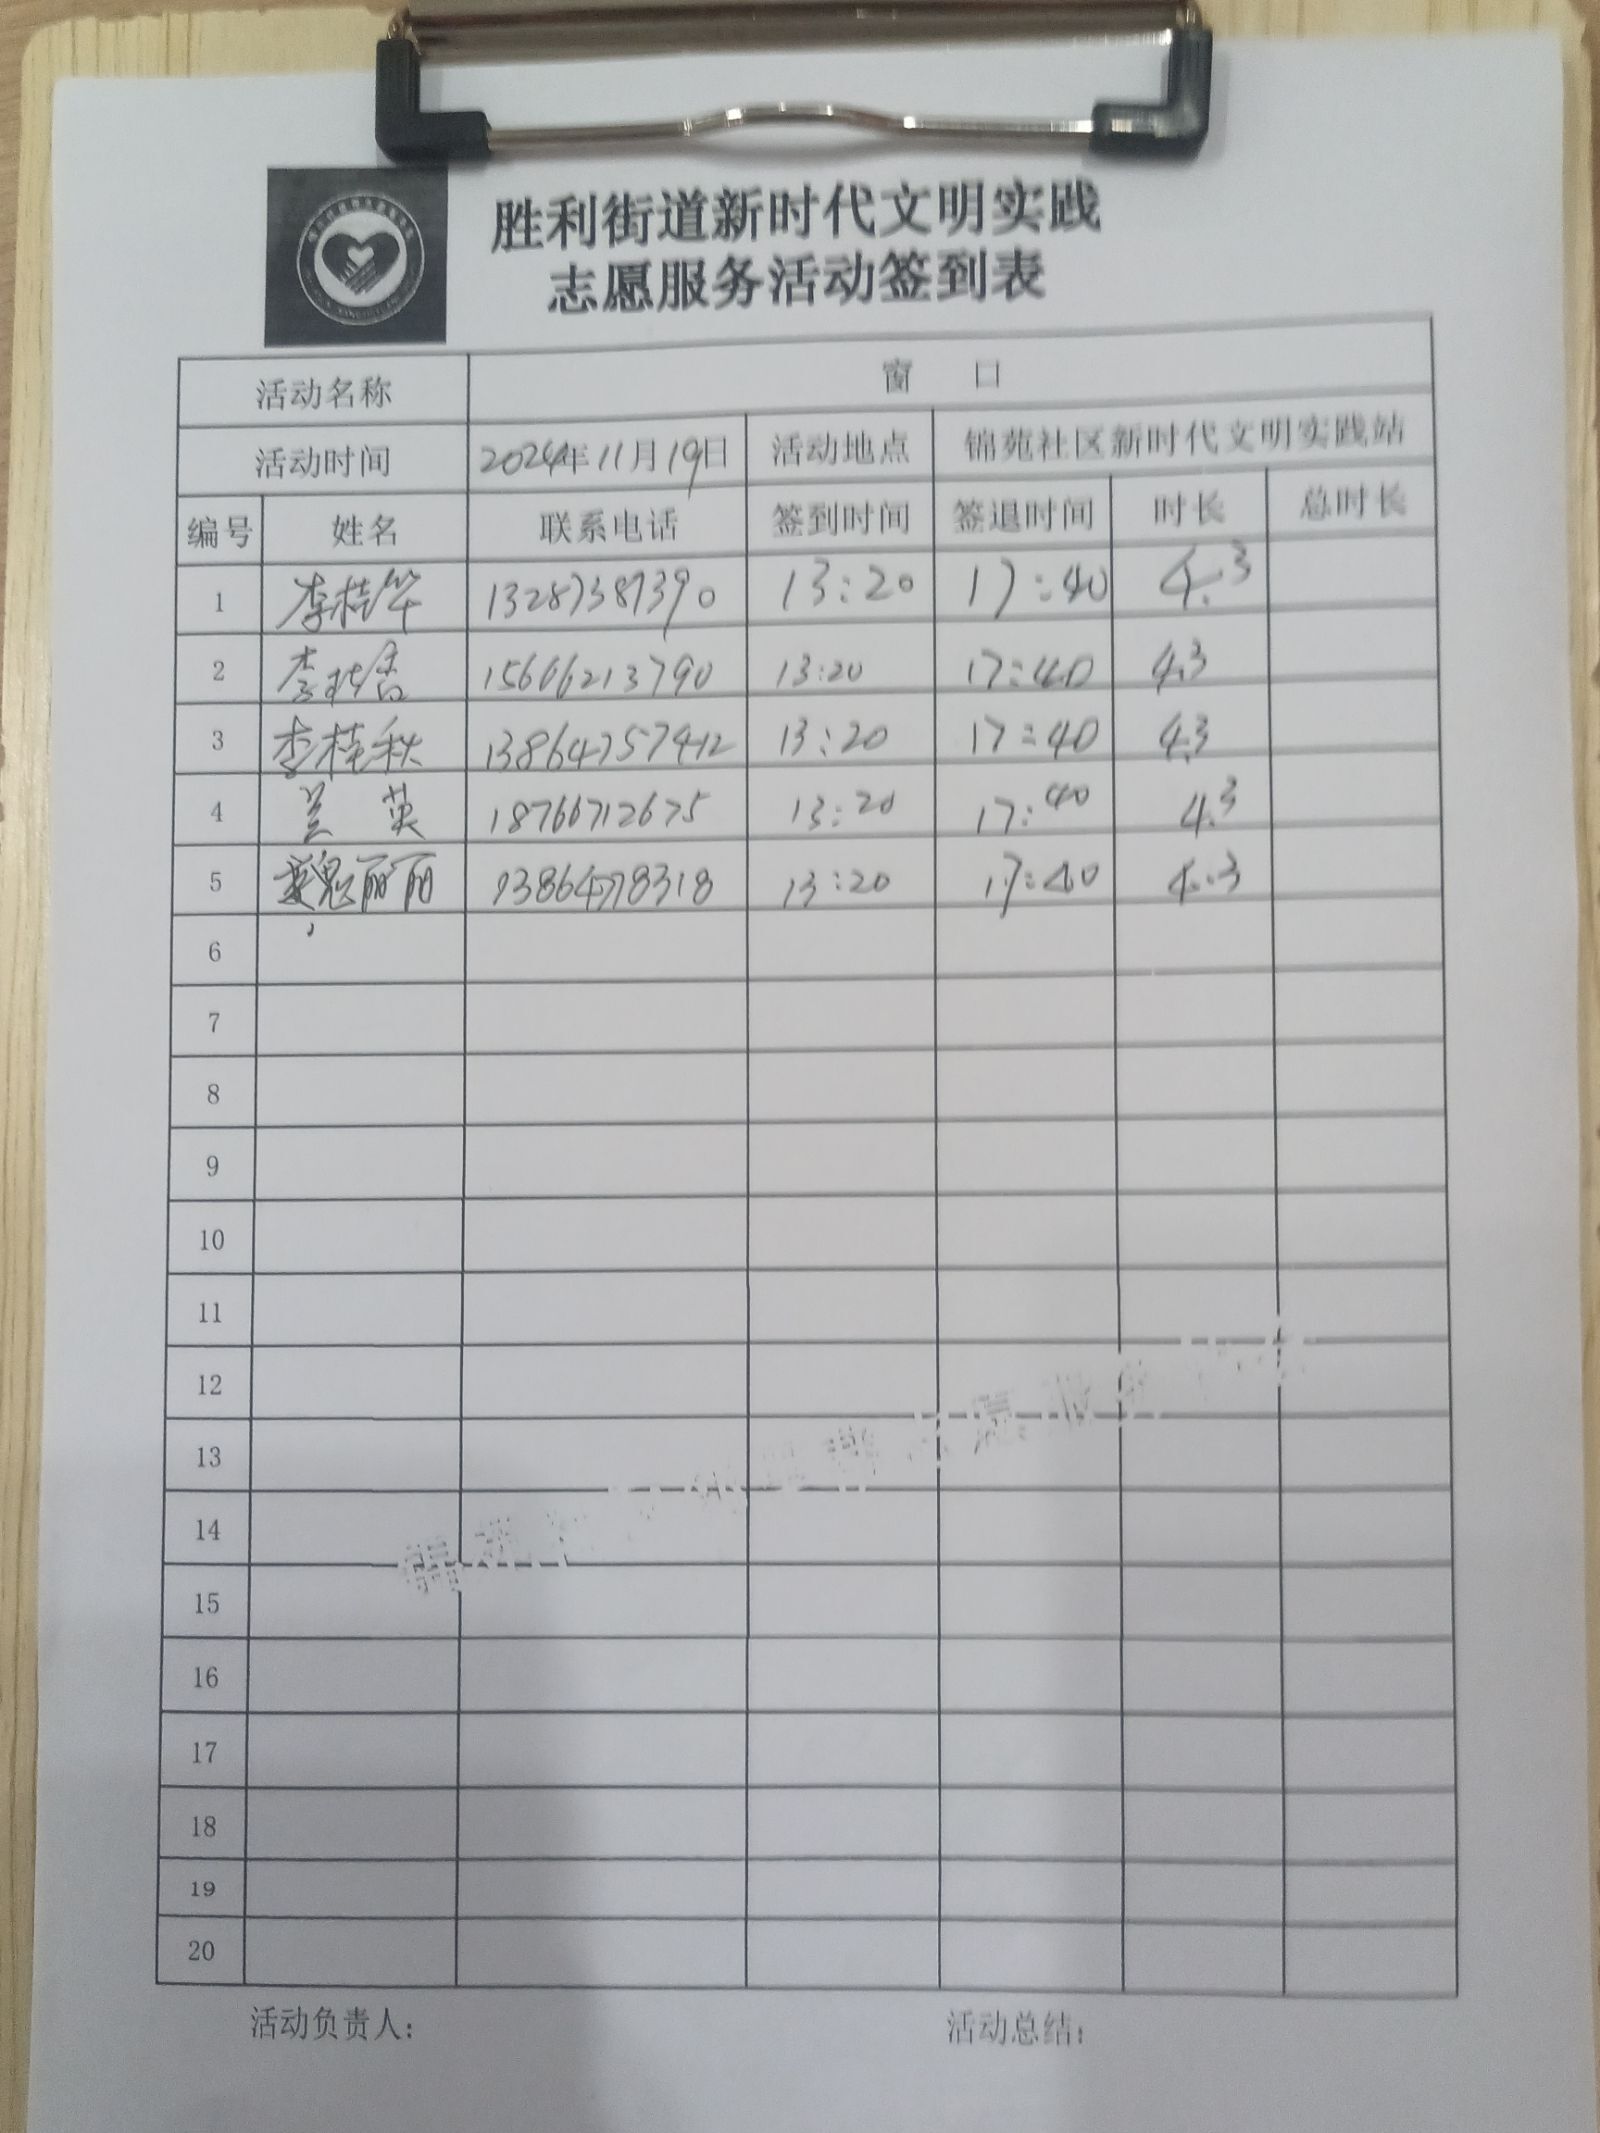 胜利街道新时代文明实践
志愿服务活动签到表
活动名称 窗 口
活动时间 2024年11月19日 活动地点 锦苑社区新时代文明实践站
编号 姓名 联系电话 签到时间 签退时间 时长 总时长
1 李桂华 13287387390 13:20 17:40 4.3
2 李桂香 15666213790 13:20 17:40 4.3
3 李桂秋 13864757412 13:20 17:40 4.3
4 兰英 18766712675 13:20 17:40 4.3
5 魏丽丽 13864778318 13:20 17:40 4.3
6
7
8
9
10
11
12
13
14
15
16
17
18
19
20
活动负责人： 活动总结：